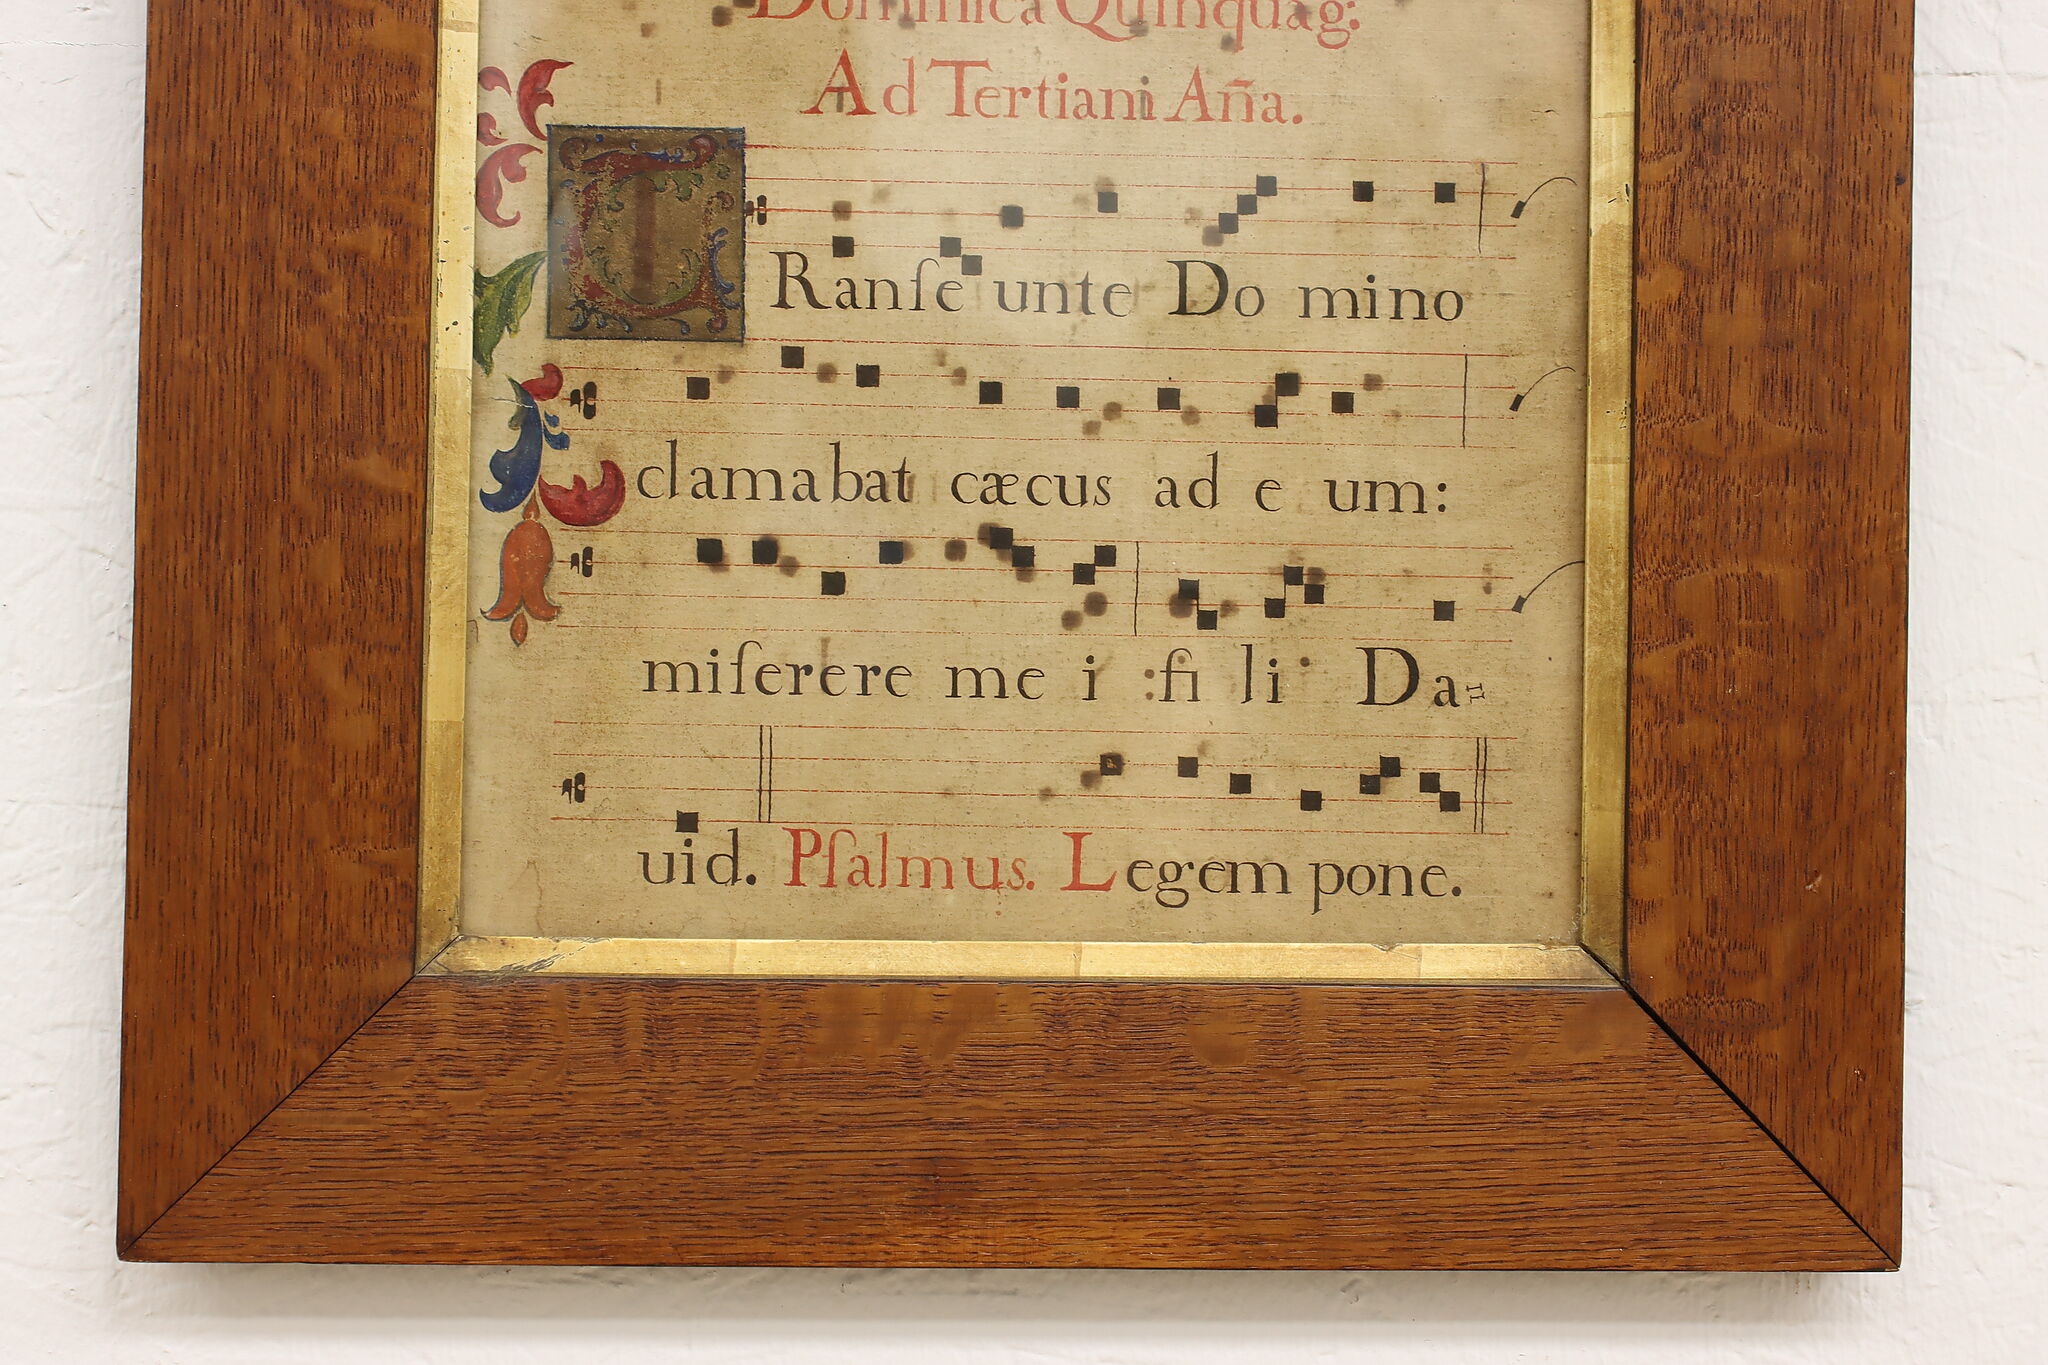 Dominica Quinquag:
Ad Tertiani Aña.
TRanſe unte Do mino
clamabat cæcus ad e um:
miſerere me i :fi li Da⹀
uid. Pſalmus. Legem pone.